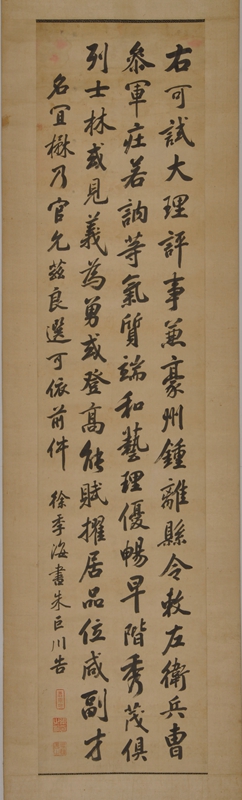 右可試大理評事兼豪州鍾離縣令敕左衛兵曹
參軍莊若訥等氣質端和藝理優暢早階秀茂俱
列士林或見義為勇或登高能賦擢居品位咸副才
名宜楙乃官允茲良選可依前件 徐季海書朱巨川告